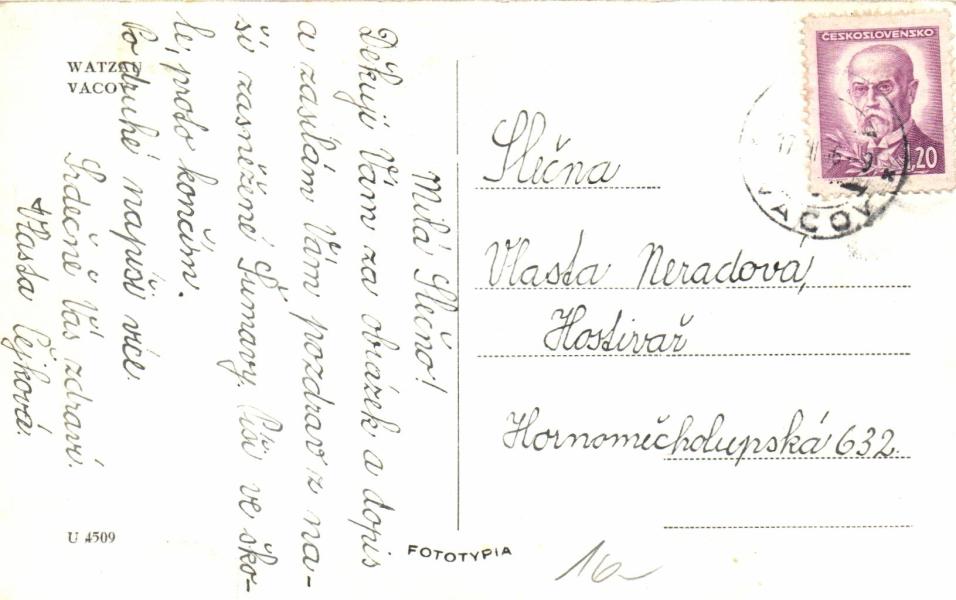 WATZAU
VACOV
Milá Slečno!
Děkuji Vám za obrázek a dopis
a zasílám Vám pozdrav z na-
ší zasněžené Šumavy. Píši ve ško-
le, proto končím.
Po druhé napíši více.
Srdečně Vás zdraví.
Vlasta Čejková.
U 4509
FOTOTYPIA
ČESKOSLOVENSKO
1,20
VACOV
Slečna
Vlasta Neradova,
Hostivař
Hornoměcholupská 632.
16-